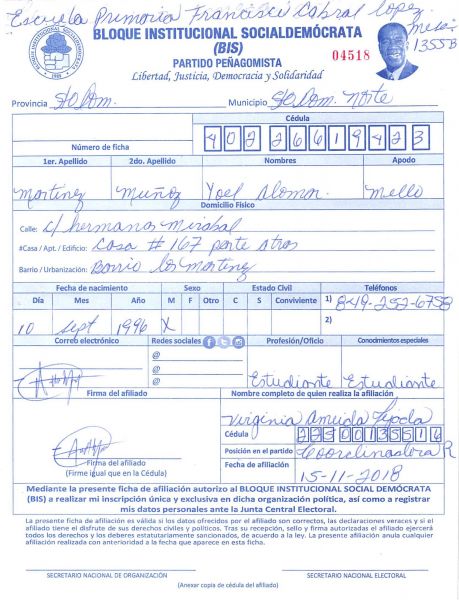 Escuela Primaria Francisco Cabral Lopez
Mesa
1355B
BLOQUE INSTITUCIONAL SOCIALDEMÓCRATA
(BIS)
PARTIDO PEÑAGOMISTA
04518
Libertad, Justicia, Democracia y Solidaridad
Provincia Sto Dom. Municipio Sto Dom. Norte
Cédula
Número de ficha 402266194 23
1er. Apellido 2do. Apellido Nombres Apodo
Martinez Muñoz Yoel Alomar Mello
Domicilio Físico
Calle: c/ hermanas Mirabal
#Casa / Apt. / Edificio: Casa # 167 parte atras
Barrio / Urbanización: Barrio los Martinez
Fecha de nacimiento Sexo Estado Civil Teléfonos
Día Mes Año M F Otro C S Conviviente 1) 849-252-6758
10 Sept 1996 X 2)
Correo electrónico Redes sociales Profesión/Oficio Conocimientos especiales
@
@
@
Estudiante Estudiante
Firma del afiliado Nombre completo de quien realiza la afiliación
Virginia
Cédula 22300135514
Posición en el partido Coordinadora R
Firma del afiliado
(Firme igual que en la Cédula)
Fecha de afiliación 15-11-2018
Mediante la presente ficha de afiliación autorizo al BLOQUE INSTITUCIONAL SOCIAL DEMÓCRATA
(BIS) a realizar mi inscripción única y exclusiva en dicha organización política, así como a registrar
mis datos personales ante la Junta Central Electoral.
La presente ficha de afiliación es válida si los datos ofrecidos por el afiliado son correctos, las declaraciones veraces y si el
afiliado tiene el disfrute de sus derechos civiles y políticos. Tras su recepción, sello y firma autorizadas el afiliado ejercerá
todos los derechos y los deberes estatutariamente sancionados, de acuerdo a la ley. La presente afiliación anula cualquier
afiliación realizada con anterioridad a la fecha que aparece en esta ficha.
SECRETARIO NACIONAL DE ORGANIZACIÓN SECRETARIO NACIONAL ELECTORAL
(Anexar copia de cédula del afiliado)